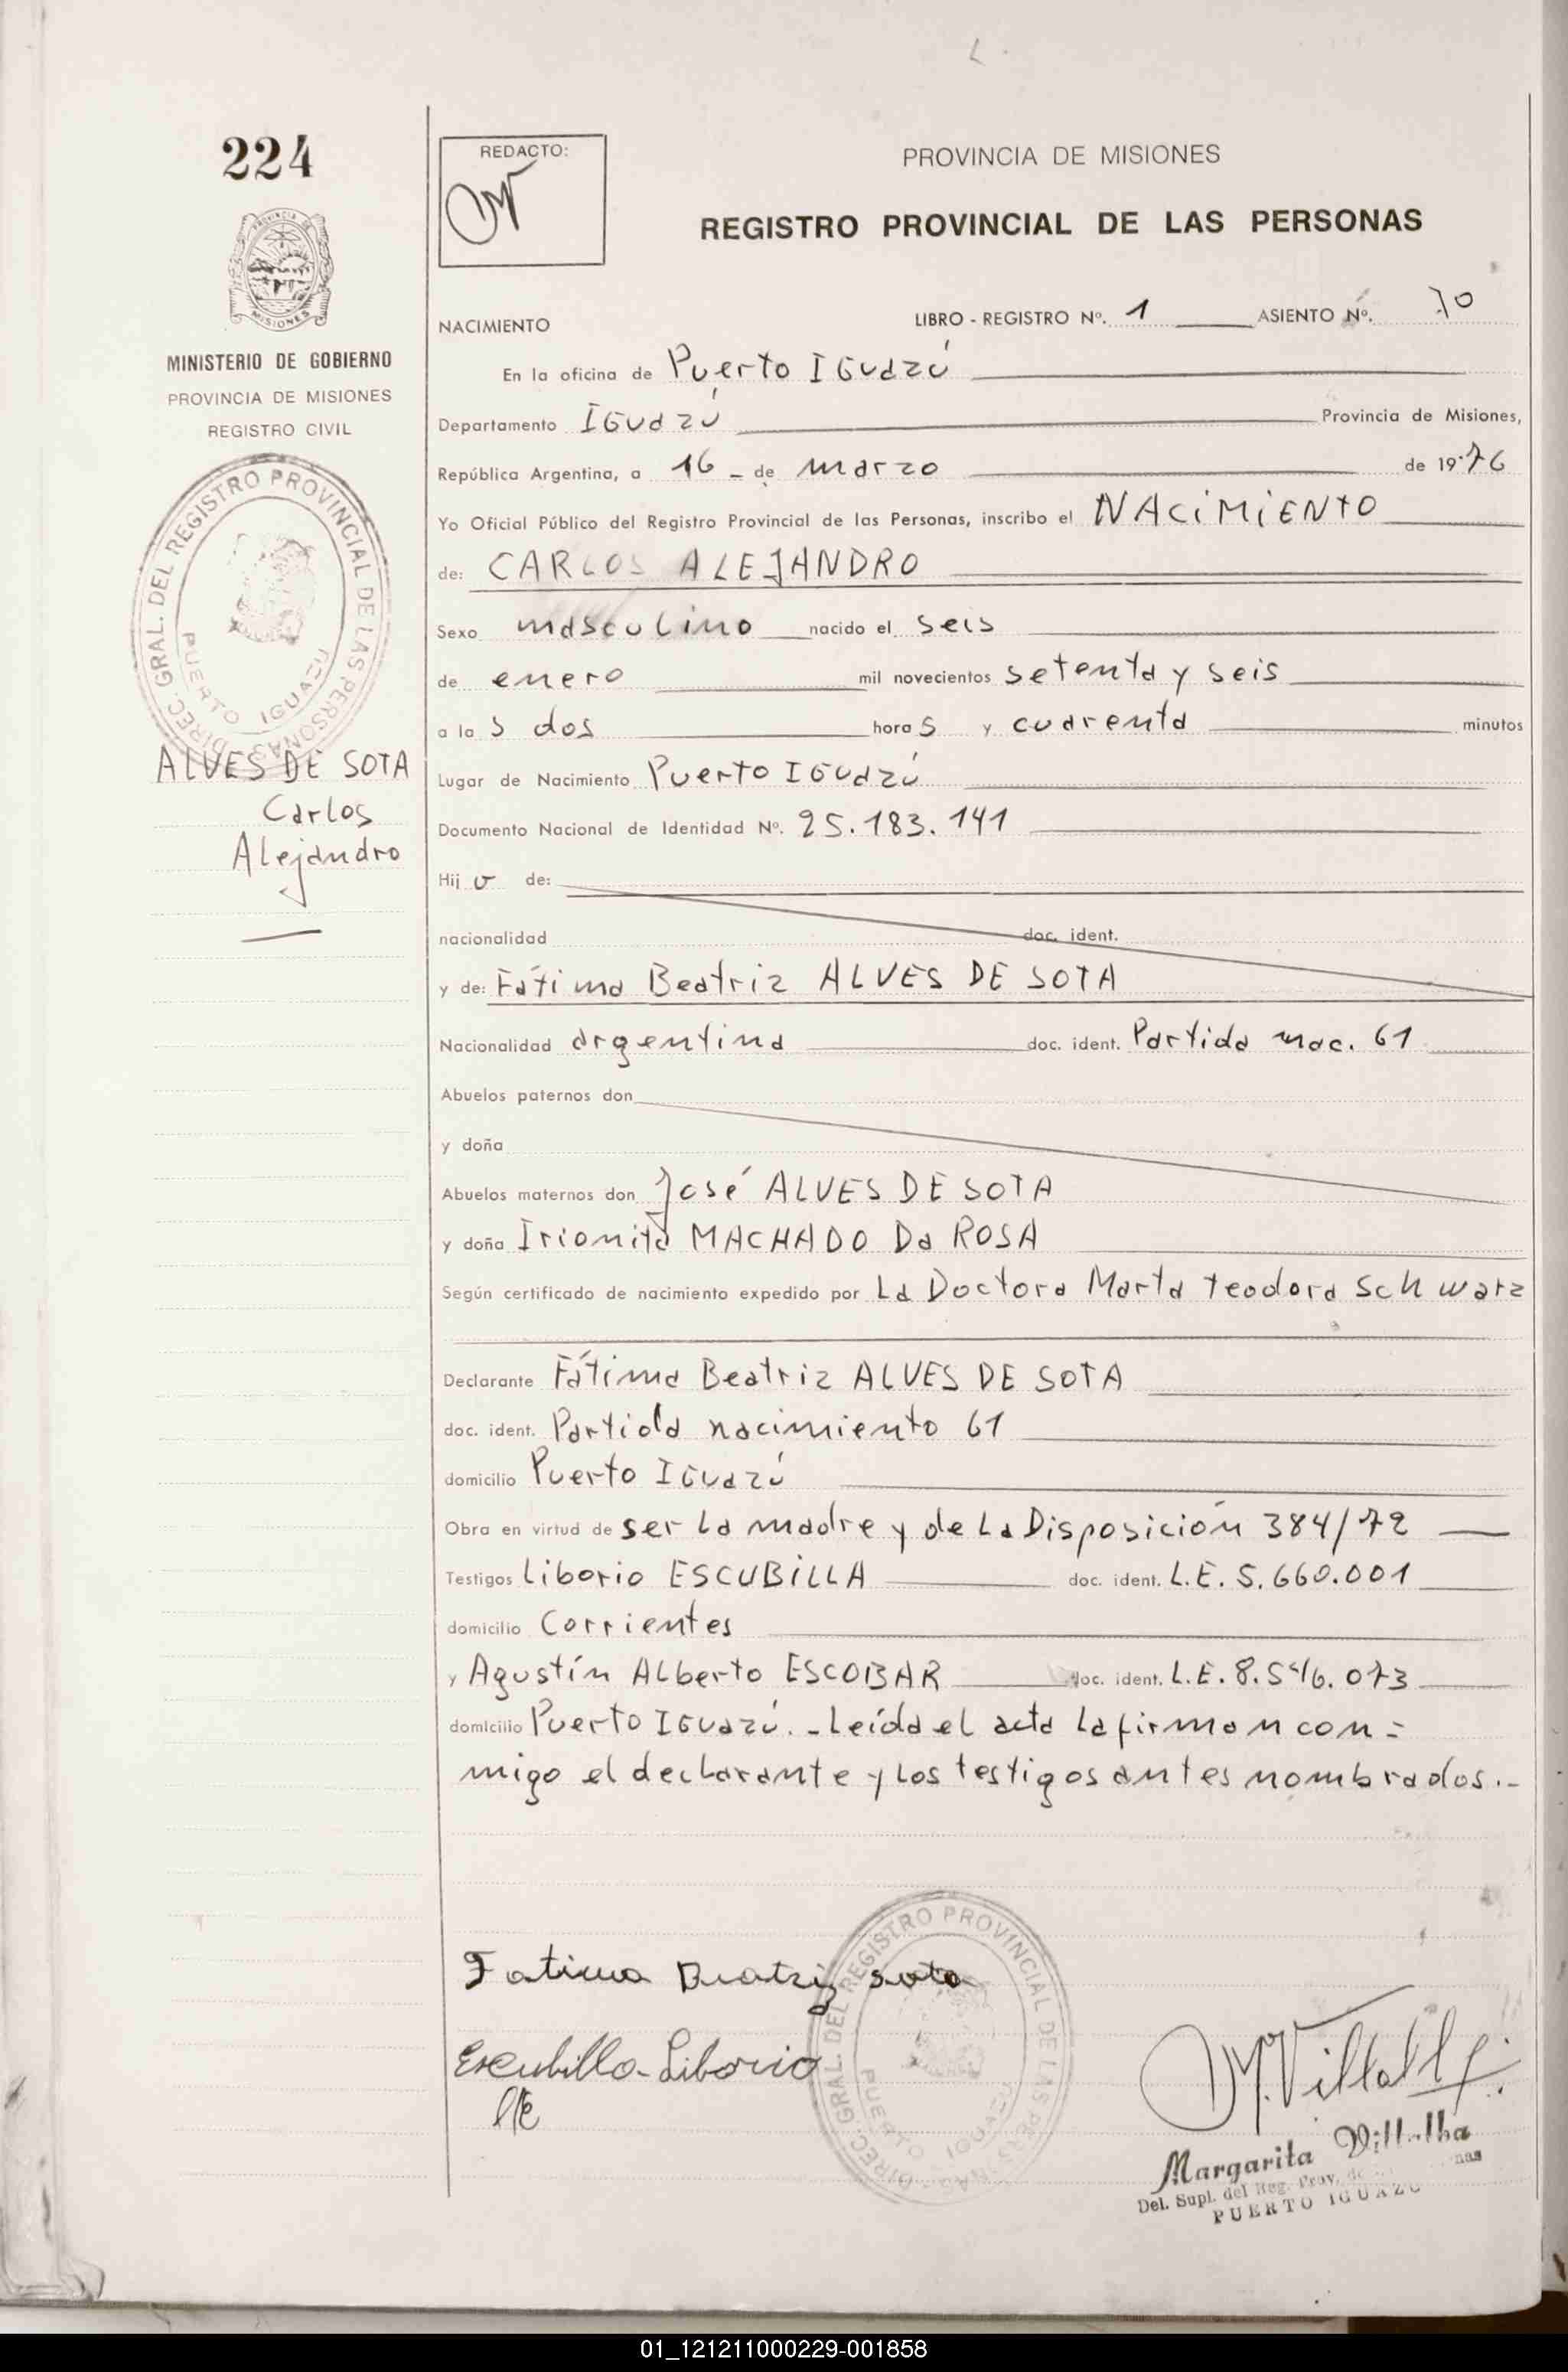 224
REDACTO:
PROVINCIA DE MISIONES
REGISTRO PROVINCIAL DE LAS PERSONAS
MISIONES
MINISTERIO DE GOBIERNO
PROVINCIA DE MISIONES
REGISTRO CIVIL
DIREC. GRAL. DEL REGISTRO PROVINCIAL DE LAS PERSONAS
PUERTO IGUAZU
ALVES DE SOTA
Carlos
Alejandro
NACIMIENTO LIBRO - REGISTRO Nº. 1 ASIENTO Nº. 70
En la oficina de Puerto IGuazú
Departamento IGuazú Provincia de Misiones,
República Argentina, a 16 - de marzo de 1976
Yo Oficial Público del Registro Provincial de las Personas, inscribo el NACiMiENTO
de: CARLOS ALEJANDRO
Sexo masculino nacido el seis
de enero mil novecientos setenta y seis
a las dos horas y cuarenta minutos
Lugar de Nacimiento Puerto IGuazú
Documento Nacional de Identidad Nº. 25.183.141
Hijo de:
nacionalidad doc. ident.
y de: Fátima Beatriz ALVES DE SOTA
Nacionalidad argentina doc. ident. Partida nac. 61
Abuelos paternos don
y doña
Abuelos maternos don José ALVES DE SOTA
y doña Irionita MACHADO Da ROSA
Según certificado de nacimiento expedido por La Doctora Marta Teodora Schwarz
Declarante Fátima Beatriz ALVES DE SOTA
doc. ident. Partida nacimiento 61
domicilio Puerto IGuazú
Obra en virtud de ser la madre y de La Disposición 384/72
Testigos Liborio ESCUBiLLA doc. ident. L.E. 5.660.001
domicilio Corrientes
y Agustín Alberto ESCOBAR doc. ident. L.E. 8.546.073
domicilio Puerto IGuazú. - Leída el acta la firman con=
migo el declarante y los testigos antes nombrados.-
Fatima Beatriz sota
Escubilla Liborio
DIREC. GRAL. DEL REGISTRO PROVINCIAL DE LAS PERSONAS
PUERTO IGUAZU
M. Villalba
Margarita Villalba
Del. Supl. del Reg. Prov. de
PUERTO IGUAZU
01_121211000229-001858